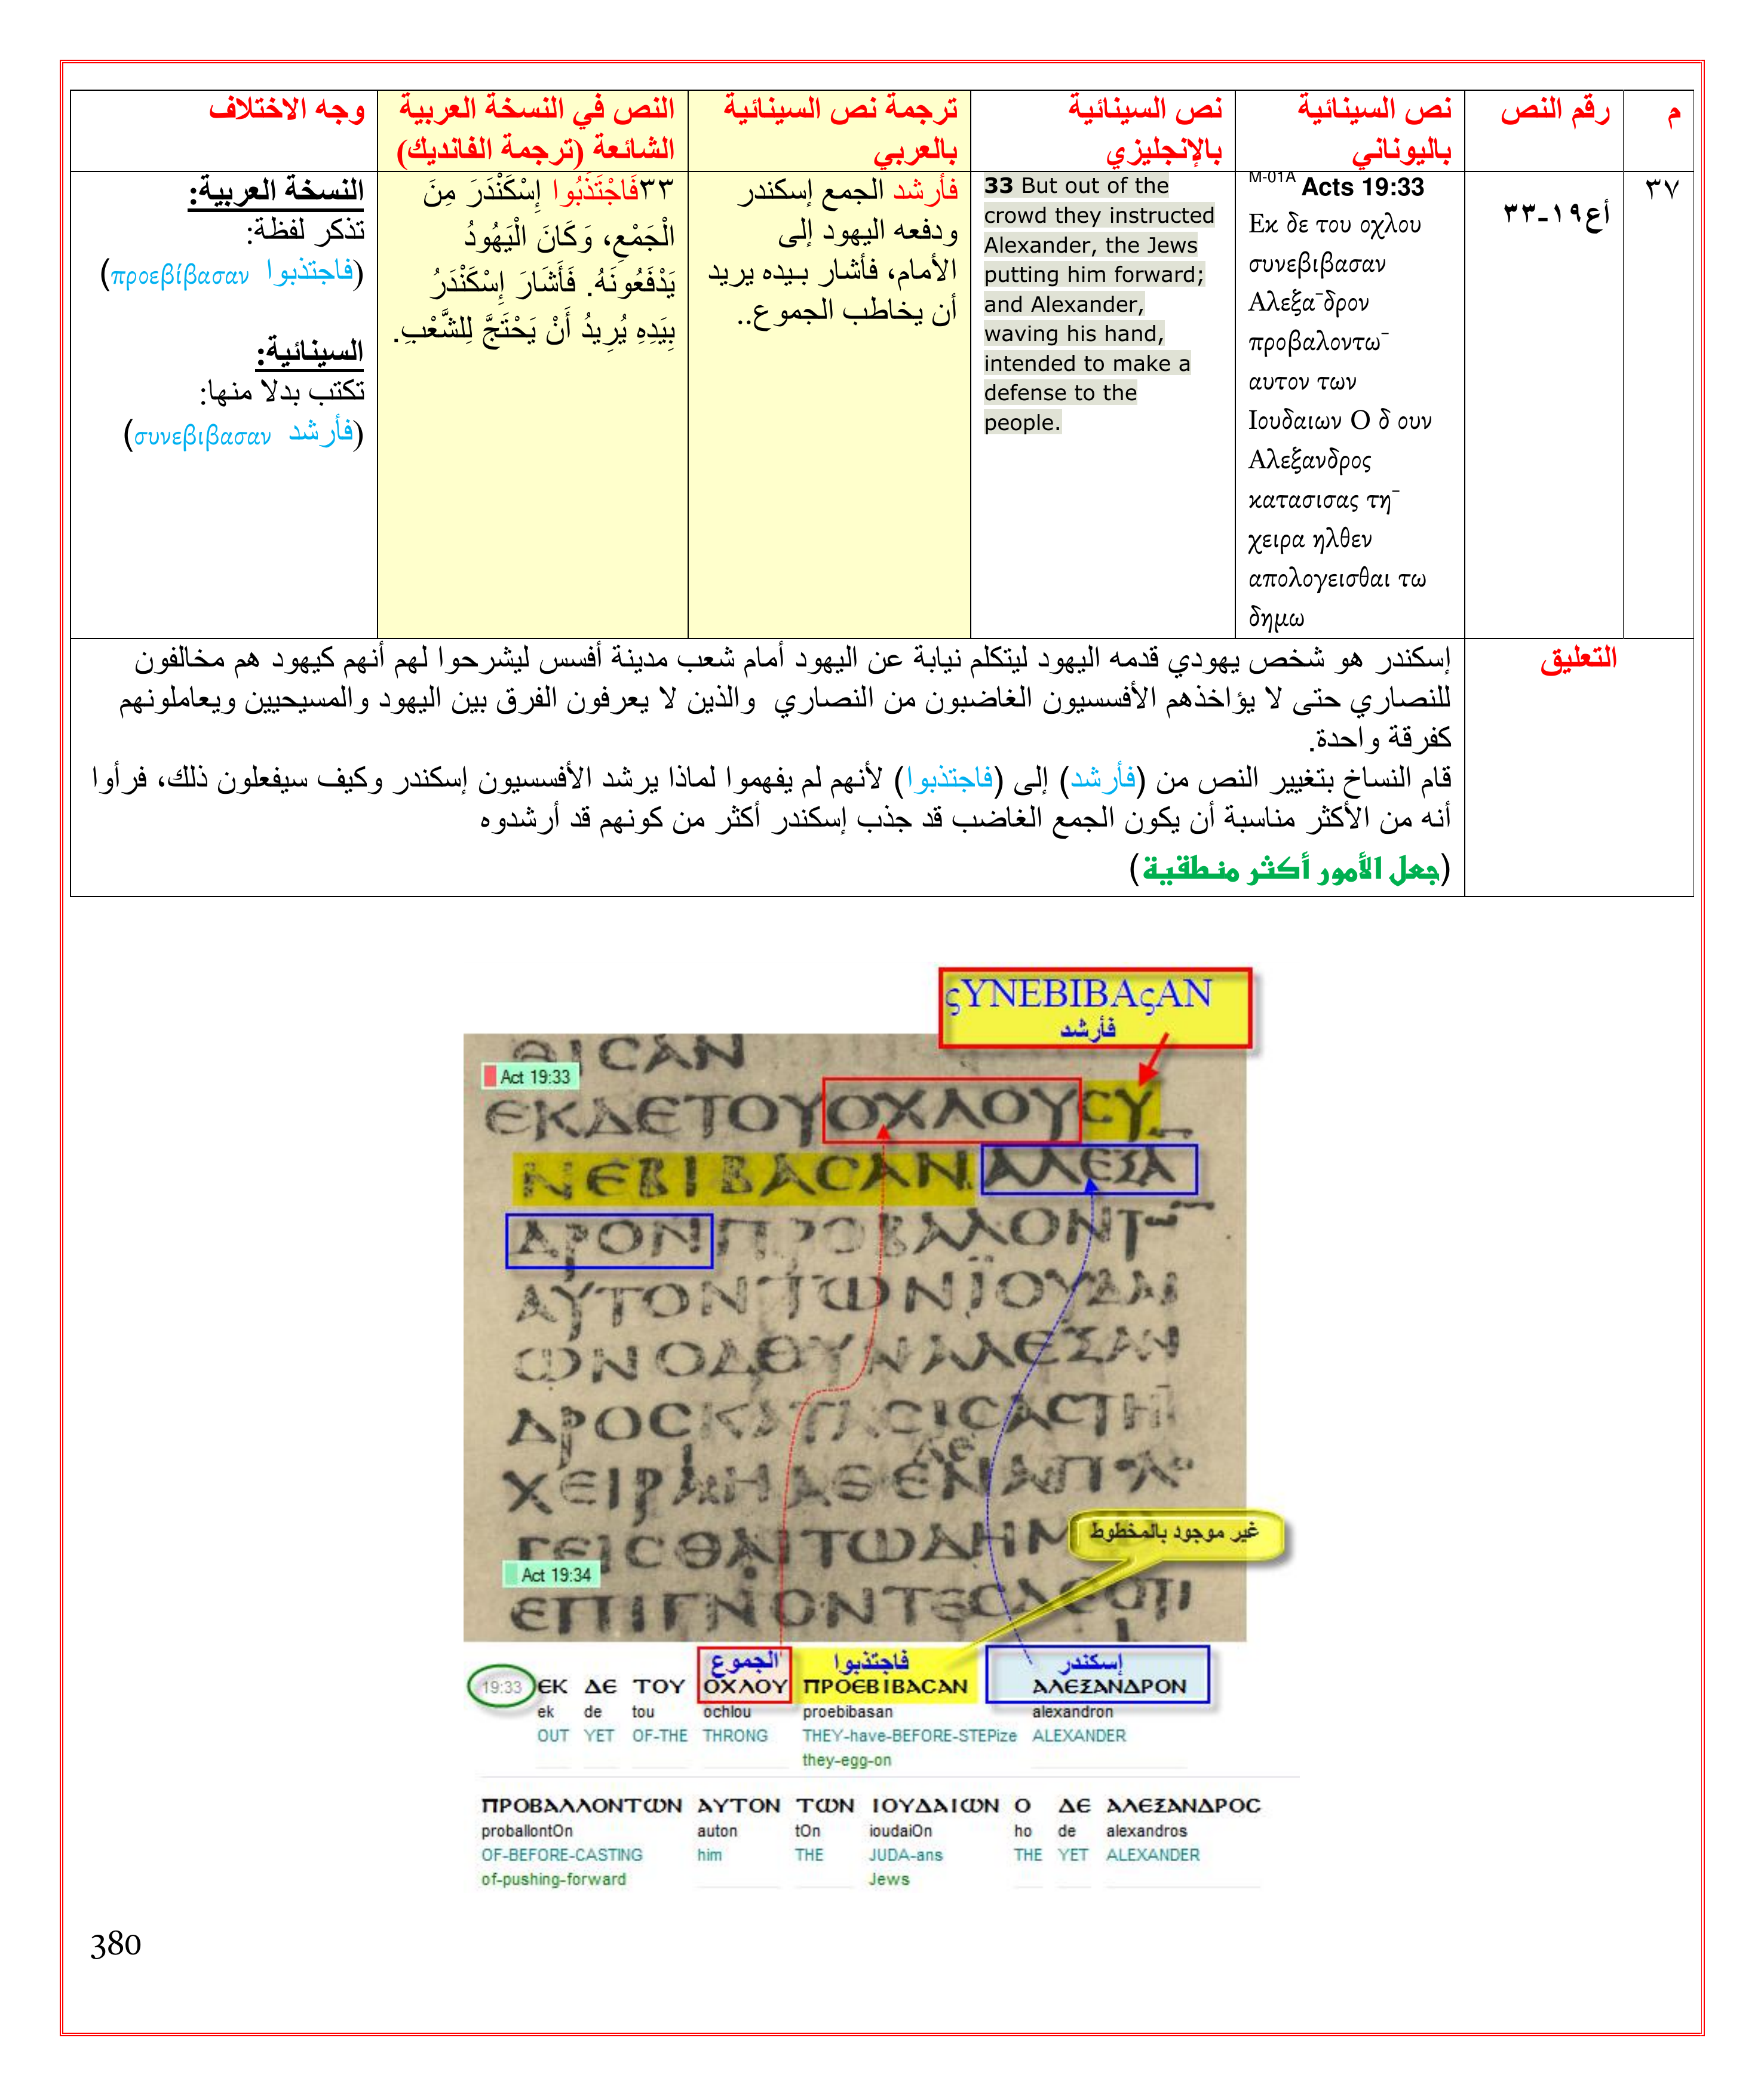 م
رقم النص
نص السينائية
باليوناني
نص السينائية
بالإنجليزي
ترجمة نص السينائية
بالعربي
النص في النسخة العربية
الشائعة (ترجمة الفانديك)
وجه الاختلاف
٣٧
أع١٩-٣٣
M-01A Acts 19:33
Εκ δε του οχλου
συνεβιβασαν
Αλεξα¯δρον
προβαλοντω¯
αυτον των
Ιουδαιων Ο δ ουν
Αλεξανδρος
κατασισας τη¯
χειρα ηλθεν
απολογεισθαι τω
δημω
33 But out of the
crowd they instructed
Alexander, the Jews
putting him forward;
and Alexander,
waving his hand,
intended to make a
defense to the
people.
فأرشد الجمع إسكندر
ودفعه اليهود إلى
الأمام، فأشار بيده يريد
أن يخاطب الجموع..
٣٣فَاجْتَذَبُوا إِسْكَنْدَرَ مِنَ
الْجَمْعِ، وَكَانَ الْيَهُودُ
يَدْفَعُونَهُ. فَأَشَارَ إِسْكَنْدَرُ
بِيَدِهِ يُرِيدُ أَنْ يَحْتَجَّ لِلشَّعْبِ.
النسخة العربية:
تذكر لفظة:
(فاجتذبوا προεβίβασαν)
السينائية:
تكتب بدلا منها:
(فأرشد συνεβιβασαν)
التعليق
إسكندر هو شخص يهودي قدمه اليهود ليتكلم نيابة عن اليهود أمام شعب مدينة أفسس ليشرحوا لهم أنهم كيهود هم مخالفون
للنصاري حتى لا يؤاخذهم الأفسسيون الغاضبون من النصاري والذين لا يعرفون الفرق بين اليهود والمسيحيين ويعاملونهم
كفرقة واحدة.
قام النساخ بتغيير النص من (فأرشد) إلى (فاجتذبوا) لأنهم لم يفهموا لماذا يرشد الأفسسيون إسكندر وكيف سيفعلون ذلك، فرأوا
أنه من الأكثر مناسبة أن يكون الجمع الغاضب قد جذب إسكندر أكثر من كونهم قد أرشدوه
(جعل الأمور أكثر منطقية)
ςYNEBIBAςAN
فأرشد
ΘΙCAN
Act 19:33
ΕΚΔΕΤΟΥΟΧΛΟΥCΥ
ΝΕΒΙΒΑCΑΝΑΛΕΞΑ
ΔΡΟΝΠΡΟΒΑΛΟΝΤω¯
ΑΥΤΟΝΤωΝΪΟΥΔΑΙ
ωΝΟΔΟΥΝΑΛΕΞΑΝ
ΔΡΟCΚΑΤΑCΙCΑCΤΗ
ΧΕΙΡΑΗΛΘΕΝΑΠΟΛΟ
غير موجود بالمخطوط
ΓΕΙCΘΑΙΤωΔΗΜω
Act 19:34
ΕΠΙΓΝΟΝΤΕCΔΕΟΤΙ
الجموع
فاجتذبوا
إسكندر
19:33 ΕΚ ΔΕ ΤΟΥ ΟΧΛΟΥ ΠΡΟΕΒΙΒΑCΑΝ ΑΛΕΞΑΝΔΡΟΝ
ek de tou ochlou proebibasan alexandron
OUT YET OF-THE THRONG THEY-have-BEFORE-STEPize ALEXANDER
they-egg-on
ΠΡΟΒΑΛΛΟΝΤωΝ ΑΥΤΟΝ ΤωΝ ΙΟΥΔΑΙωΝ Ο ΔΕ ΑΛΕΞΑΝΔΡΟC
proballontOn auton tOn ioudaiOn ho de alexandros
OF-BEFORE-CASTING him THE JUDA-ans THE YET ALEXANDER
of-pushing-forward Jews
380